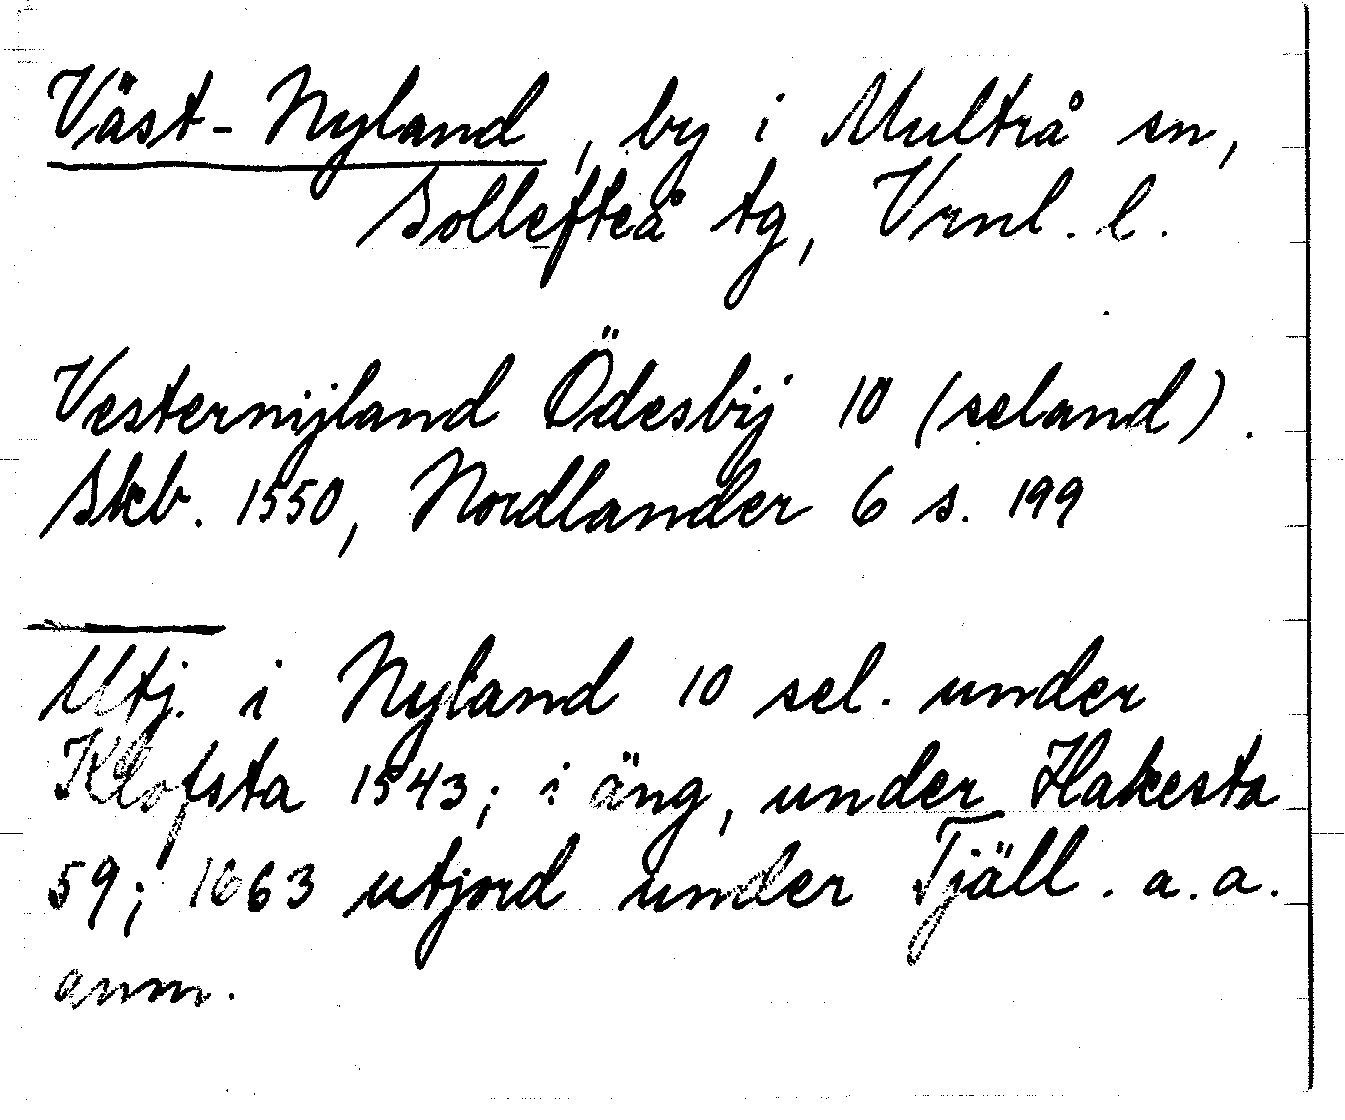 Väst-Nyland, by i Multrå sn,
Sollefteå tg, Vrnl. l.
Vesternijland Ödesbij 10 (seland).
Skb. 1550, Nordlander 6 s. 199
Utj. i Nyland 10 sel. under
Klofsta 1543; i äng, under Hakesta
59; 1663 utjord under Tjäll. a.a.
anm.